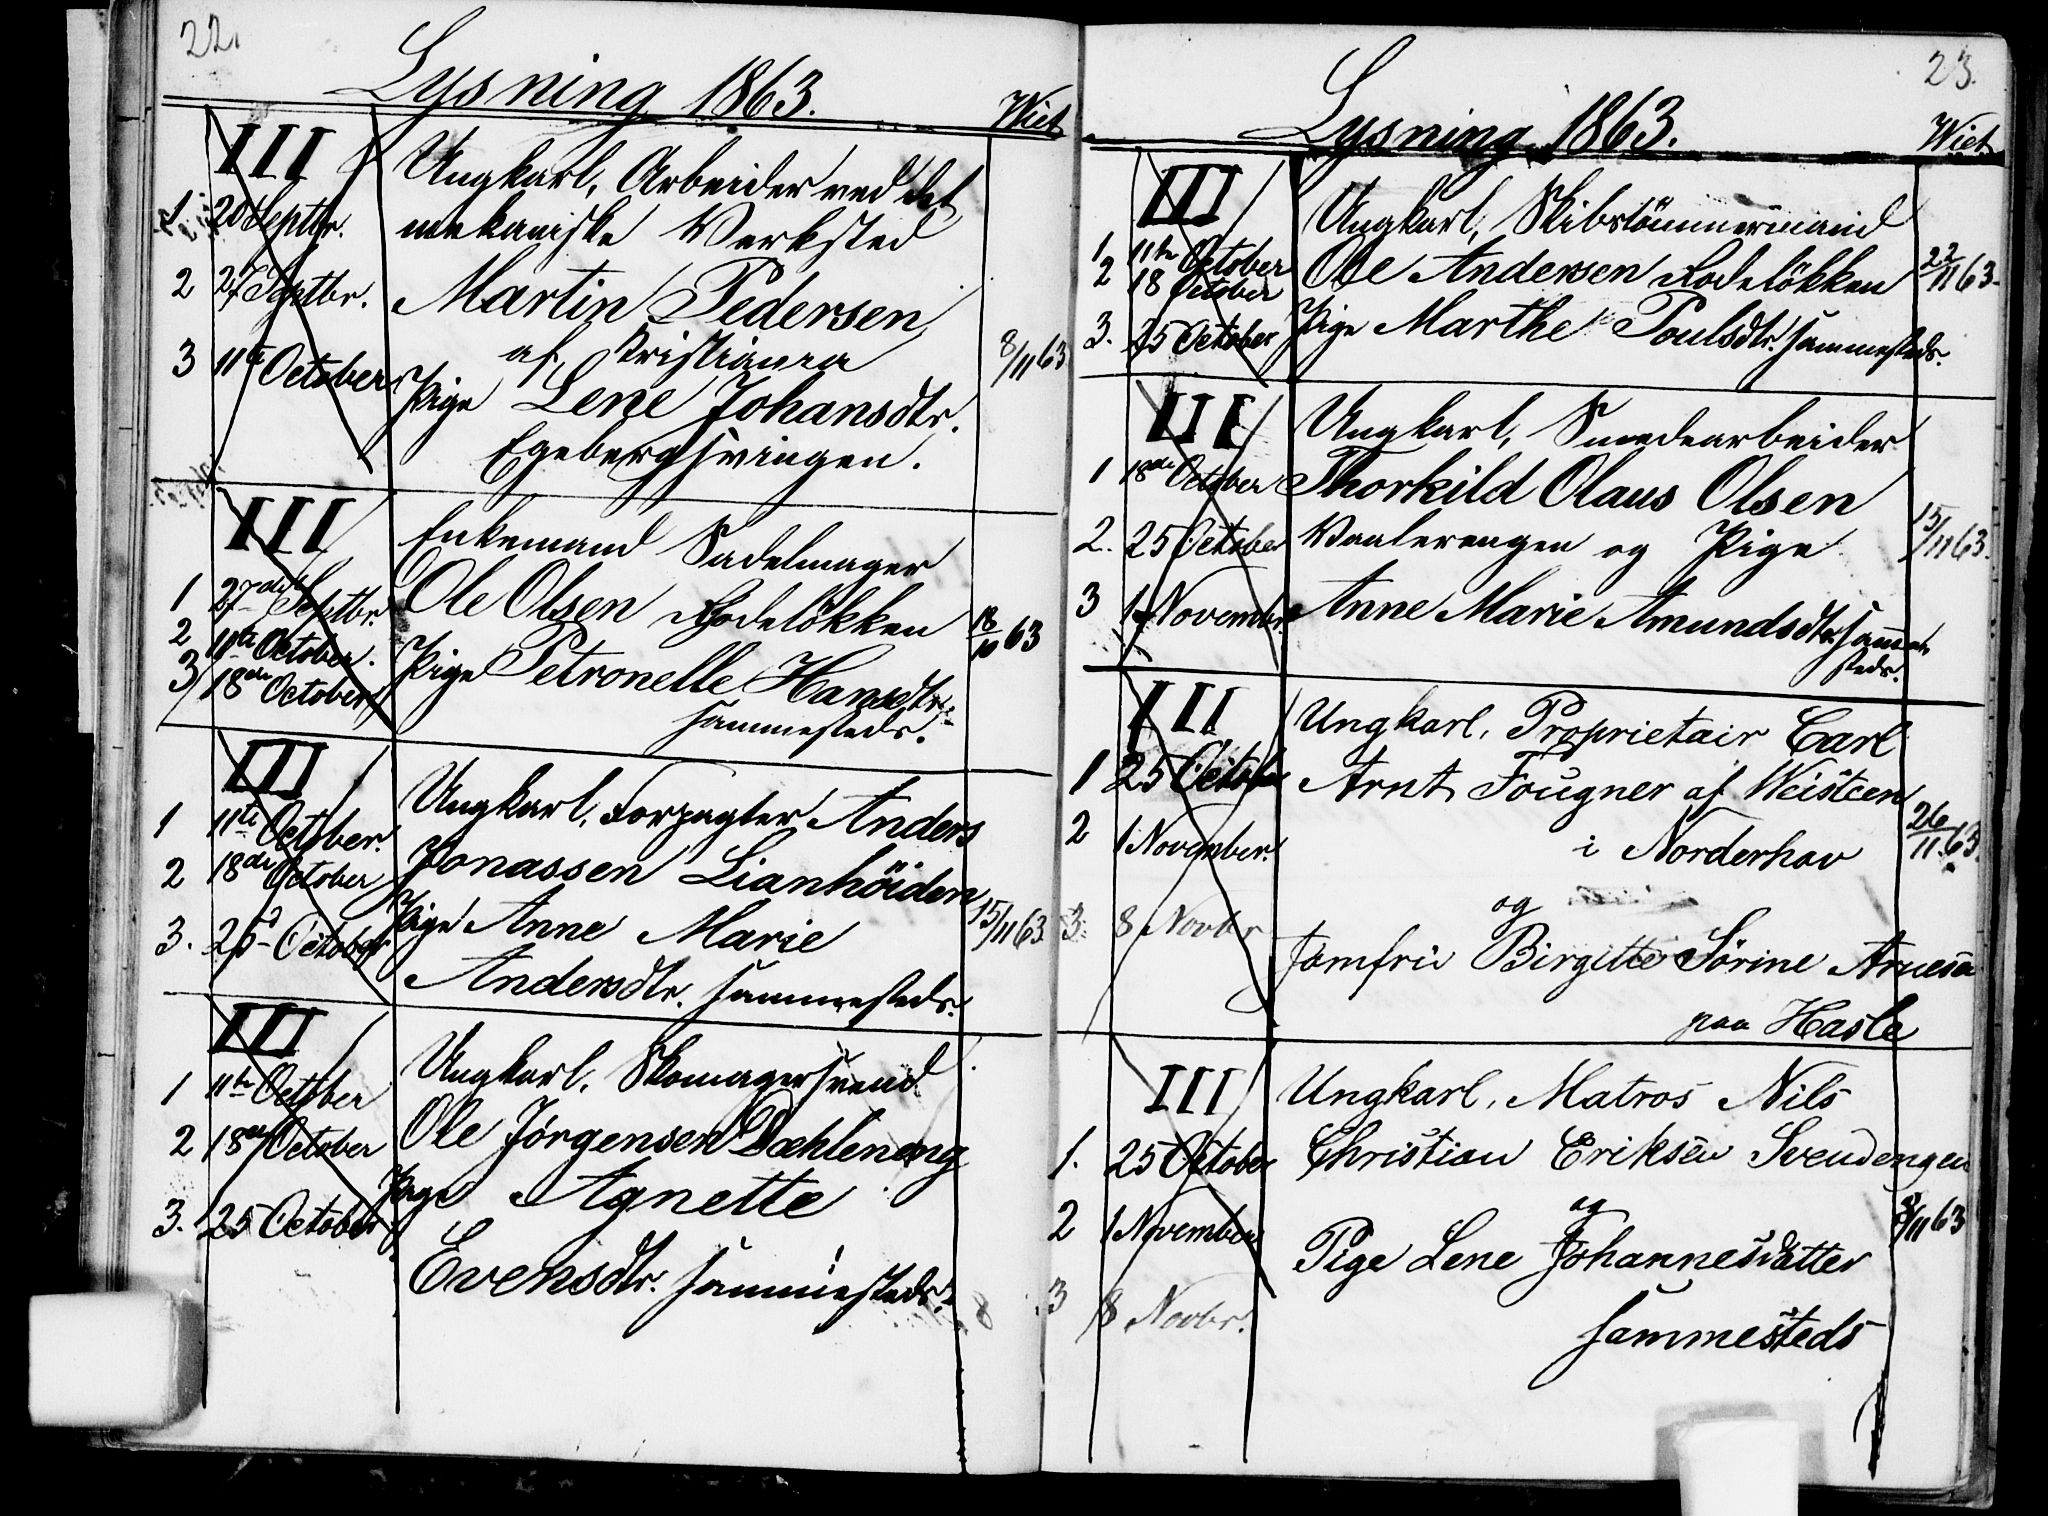 22.
Lysning 1863.
Wiet
III
Ungkarl, Arbeider ved det
1 20 Septbr. mekaniske Verksted
2 27 Septbr. Martin Pedersen
af Kristiania 8/11 63
3 11te October Pige Lene Johansdtr.
Egebergsvingen.
III
Enkemand Sadelmager
1 27de Septbr. Ole Olsen Rodeløkken 18/10 63
2 11te October.
3 18de October Pige Petronelle Hansdtr.
sammesteds.
III
Ungkarl, Forpagter Anders
1 11te October.
2 18de October Jonassen Lianhöiden
3. 25 October Pige Anne Marie 15/11 63
Andersdtr. sammesteds.
III
Ungkarl, Skomagersvend
1 11te October
2 18de October Ole Jørgensen Dæhleneng
Pige Agnette
3. 25 October
Evensdtr. sammesteds.
23.
Lysning 1863.
Wiet
III
Ungkarl, Skibstömmermand
1 11te October
2 18 October Ole Andersen Rodelökken 22/11 63
3. 25 October Pige Marthe Poulsdtr. sammesteds.
III
Ungkarl, Smedearbeider
1 18de October Thorkild Olaus Olsen
2. 25 October Vaalerengen og Pige 15/11 63.
3 1 November Anne Marie Amundsdtr. sammesteds.
III
Ungkarl, Proprietair Carl
1 25 October Arnt Fougner af Weisteen
2 1 November. i Norderhov 26/11 63.
og
3. 8 Novbr Jomfru Birgitte Sörine Arnesen
paa Hasle
III
Ungkarl, Matros Nils
1. 25 October Christian Eriksen Svendengen
og
2 1 November Pige Lene Johannesdatter 8/11 63
3 8 Novbr.
sammesteds